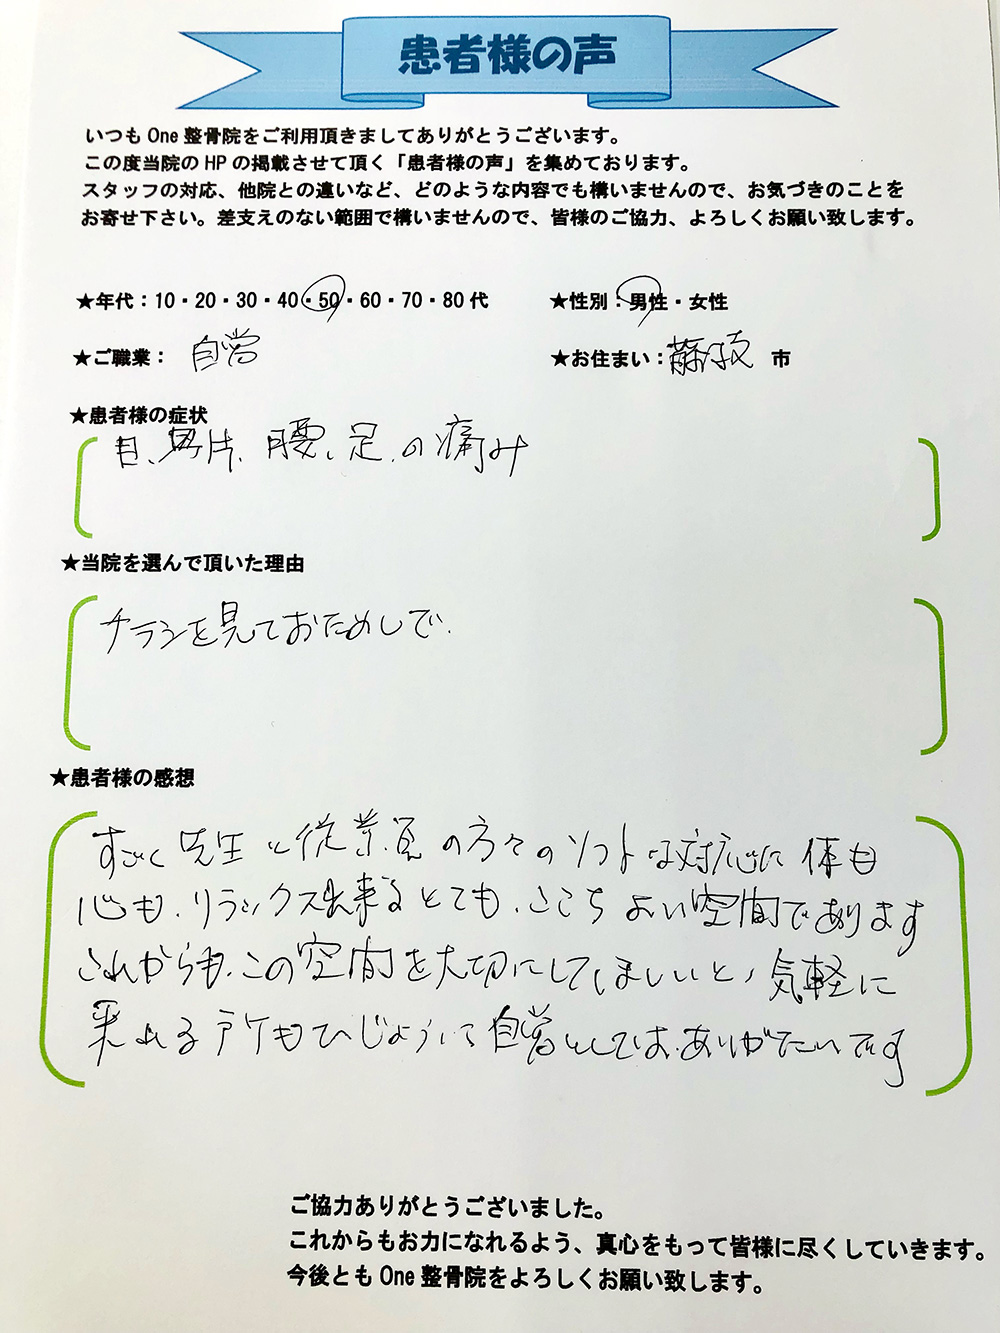 患者様の声
いつも One 整骨院をご利用頂きましてありがとうございます。
この度当院の HP の掲載させて頂く「患者様の声」を集めております。
スタッフの対応、他院との違いなど、どのような内容でも構いませんので、お気づきのことを
お寄せ下さい。差支えのない範囲で構いませんので、皆様のご協力、よろしくお願い致します。
★年代：10・20・30・40・50・60・70・80 代 ★性別：男性・女性
★ご職業： 自営 ★お住まい：藤枝 市
★患者様の症状
目、肩、腰、足、の痛み
★当院を選んで頂いた理由
チラシを見ておためしで.
★患者様の感想
すごく先生と従業員の方々のソフトな対応に体も
心も、リラックス出来るとても、ここちよい空間であります
これからも、この空間を大切にしてほしいと、気軽に
来れる所もひじょうに自営としては、ありがたいです
ご協力ありがとうございました。
これからもお力になれるよう、真心をもって皆様に尽くしていきます。
今後とも One 整骨院をよろしくお願い致します。